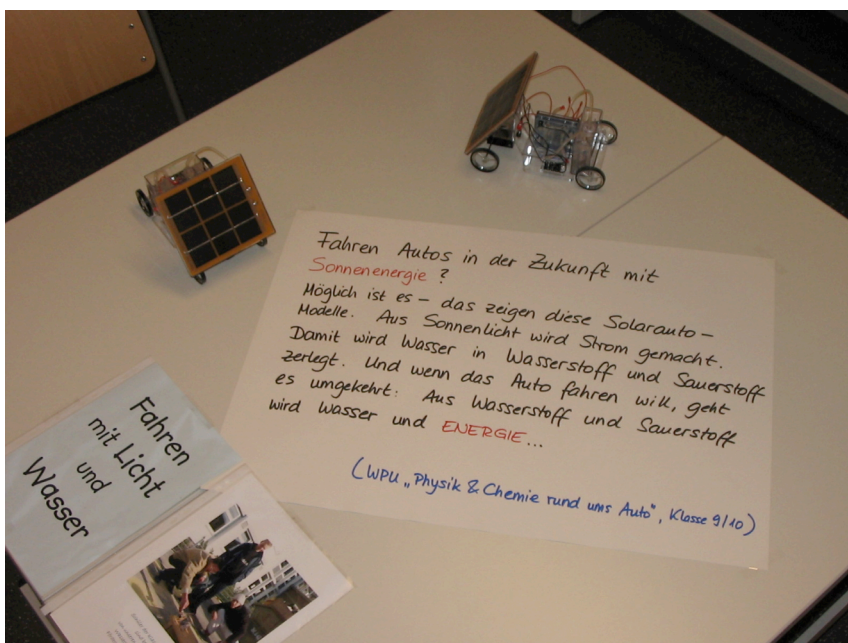 Fahren Autos in der Zukunft mit
Sonnenenergie ?
Möglich ist es – das zeigen diese Solarauto –
Modelle. Aus Sonnenlicht wird Strom gemacht.
Damit wird Wasser in Wasserstoff und Sauerstoff
zerlegt. Und wenn das Auto fahren will, geht
es umgekehrt: Aus Wasserstoff und Sauerstoff
wird Wasser und ENERGIE...
(WPU „Physik & Chemie rund ums Auto", Klasse 9/10)
Fahren
mit Licht
und
Wasser